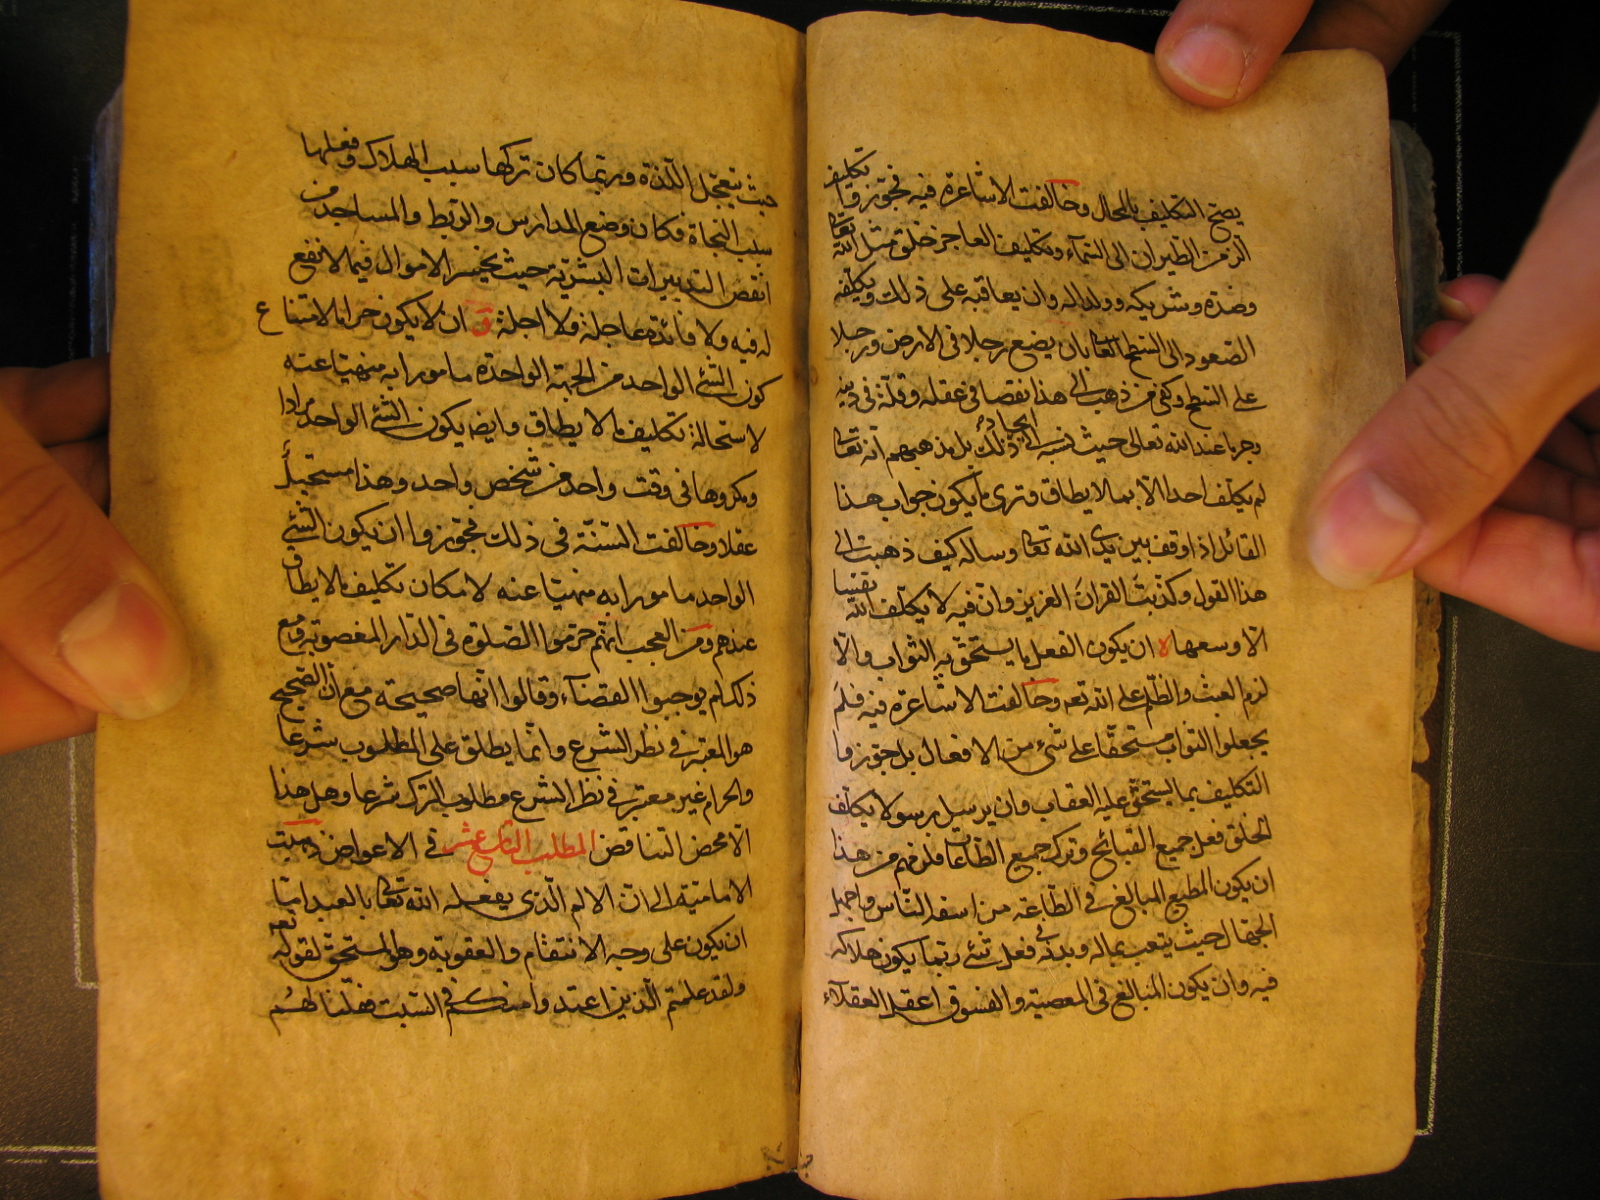 يصح التكليف بالمحال وخالفت الاشاعرة فيه فجوزوا تكليف
الزمن الطيران الى السماء وتكليف العاجز خلق مثل الله تعالى
وضده وشريكه وولد له وان يعاقبه على ذلك وتكليفه
الصعود الى السطح العالى بان يضع رجلا فى الارض ورجلا
على السطح وكفى من ذهب الى هذا نقصا فى عقله وقلة فى دينه
وجرءا عند الله تعالى حيث نسبه الى ايجاد ذلك بل مذهبهم انه تعالى
لم يكلف احدا الا بما لا يطاق وترى ما يكون جواب هذا
القائل اذا وقف بين يدى الله تعالى وساله كيف ذهبت الى
هذا القول وكذبت القران العزيز وان فيه لا يكلف الله نفسا
الا وسعها ه ان يكون الفعل ما يستحق به الثواب والا
لزم العبث والظلم على الله تعه وخالفت الاشاعرة فيه فلم
يجعلوا الثواب مستحقا على شىء من الافعال بل جوزوا
التكليف بما يستحق عليه العقاب وان يرسل رسولا يكلف
الخلق فعل جميع القبائح وترك جميع الطاعات فلزمهم من هذا
ان يكون المطيع المبالغ فى الطاعة من اسفه الناس واجهل
الجهال حيث يتعب بماله وبدنه فى فعل شئ ربما يكون هلاكه
فيه وان يكون المبالغ فى المعصية والفسوق اعقل العقلاء
حيث يتعجل اللذة وربما كان تركها سبب الهلاك وفعلها
سبب النجاة فكان وضع المدارس والربط والمساجد من
انقص التدبيرات البشرية حيث يخسر الاموال فيما لا نفع
له فيه ولا فائدة عاجلة ولا اجلة و ان لا يكون حراما لامتناع
كون الشئ الواحد من الجهة الواحدة مامورا به منهيا عنه
لاستحالة تكليف ما لا يطاق وايضه يكون الشئ الواحد مرادا
ومكروها فى وقت واحد من شخص واحد وهذا مستحيل
عقلا وخالفت السنة فى ذلك فجوزوا ان يكون الشئ
الواحد مامورا به منهيا عنه لامكان تكليف ما لا يطاق
عندهم ومن العجب انهم حرموا الصلوة فى الدار المغصوبة ومع
ذلك لم يوجبوا القضاء وقالوا انها صحيحة مع ان الصحيح
هو المعتبر فى نظر الشرع وانما يطلق على المطلوب شرعا
والحرام غير معتبر فى نظر الشرع مطلوب الترك شرعا وهل هذا
الا محض التناقض المطلب الثامن عشر فى الاعواض ذهبت
الامامية الى ان الالم الذى يفعله الله تعالى بالعبد اما
ان يكون على وجه الانتقام والعقوبة وهو المستحق لقوله تعه
ولقد علمتم الذين اعتدوا منكم فى السبت فقلنا لهم